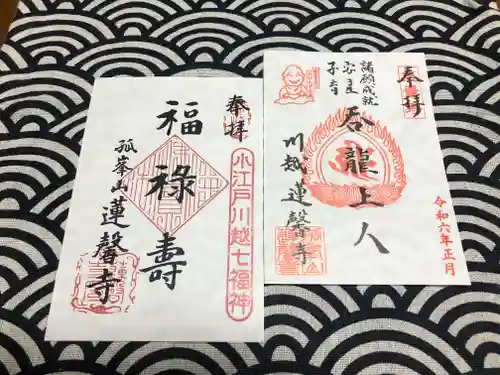 奉拝
諸願成就
安産
子育
呑龍上人
川越蓮馨寺
令和六年正月
奉拝
小江戸川越七福神
福禄寿
孤峯山
蓮馨寺